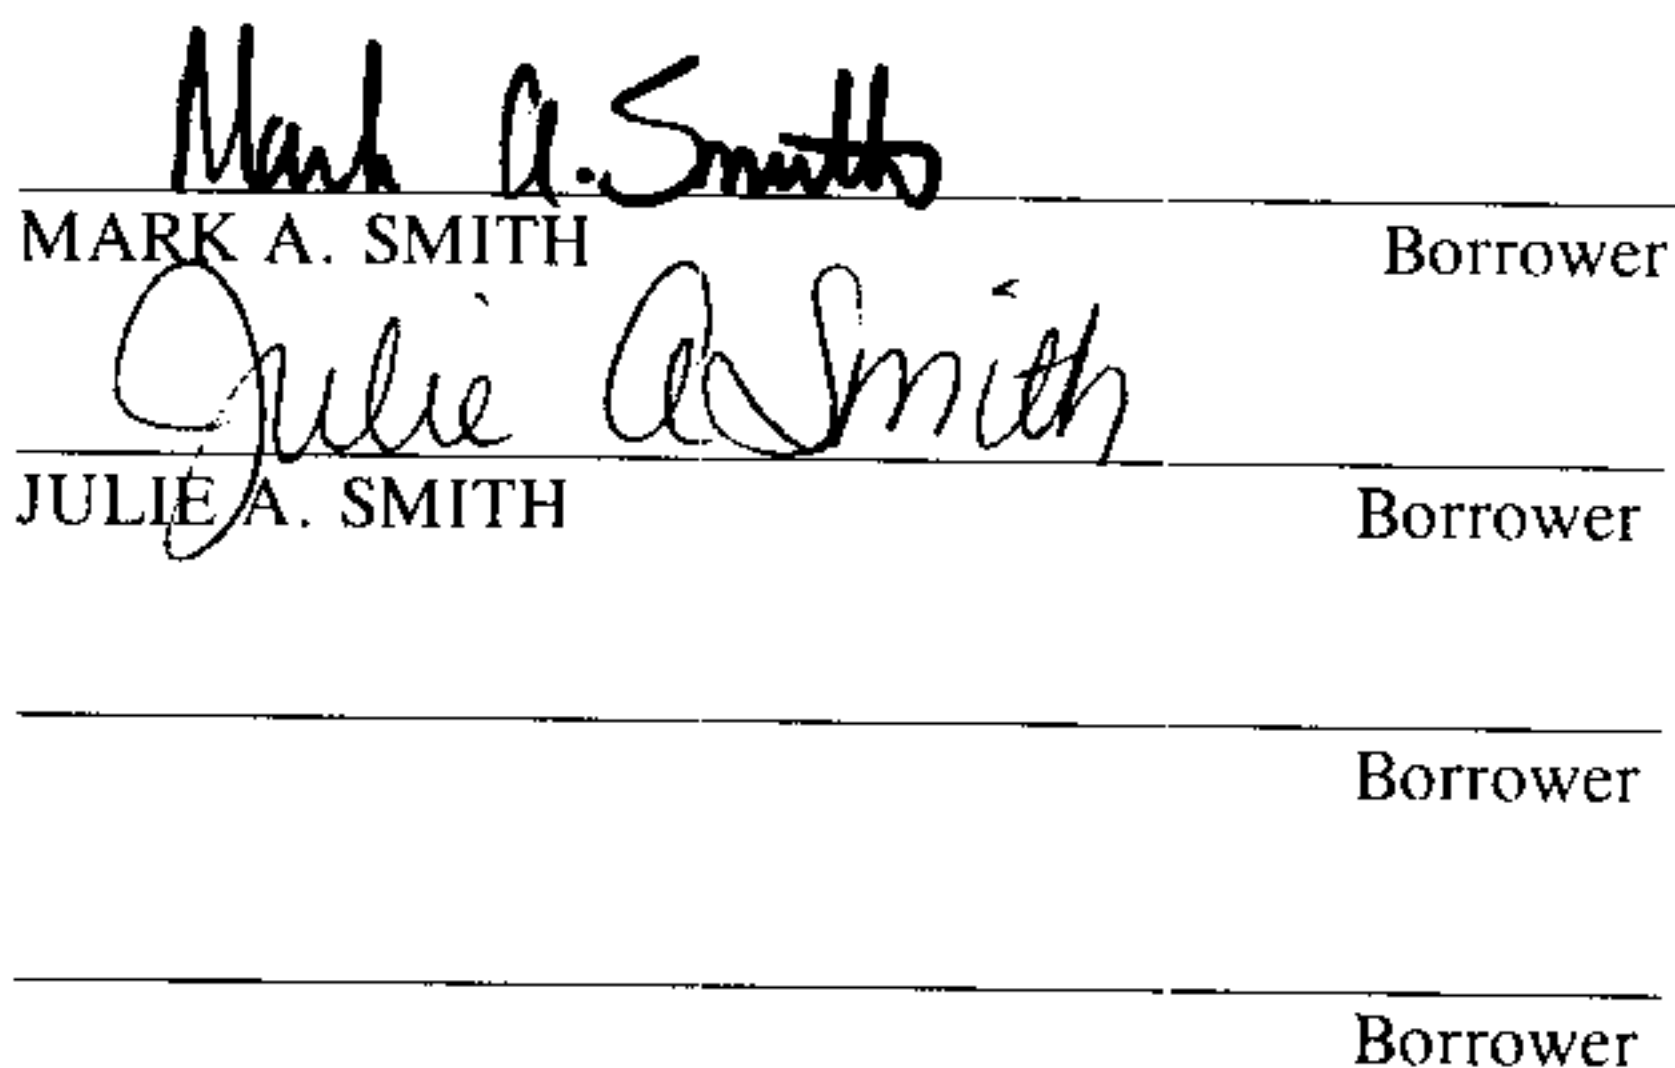 Mark A. Smith
MARK A. SMITH Borrower
Julie A Smith
JULIE A. SMITH Borrower
Borrower
Borrower